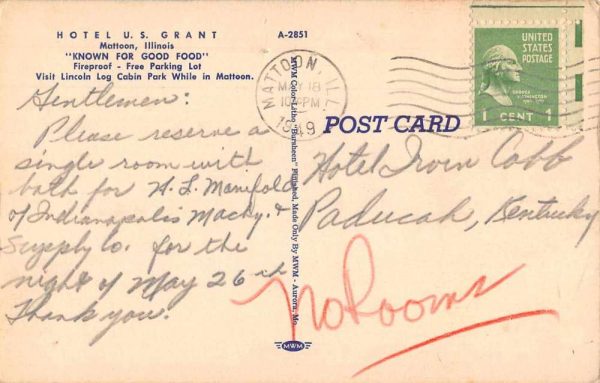 HOTEL U.S. GRANT
Mattoon, Illinois
"KNOWN FOR GOOD FOOD"
Fireproof - Free Parking Lot
Visit Lincoln Log Cabin Park While in Mattoon.
A-2851
MATTOON, ILL.
MAY 18
PM
1949
UNITED
STATES
POSTAGE
GEORGE
WASHINGTON
1 CENT 1
POST CARD
Gentlemen:
Please reserve a
single room with
bath for H. L. Manifold
of Indianapolis Machy. &
Supply Co. for the
night of May 26th
Thank you.
MWM Color-Litho, "Bursheen" Finished, Made Only By MWM - Aurora, Mo.
MWM
Hotel Irvin Cobb
Paducah, Kentucky
No Rooms